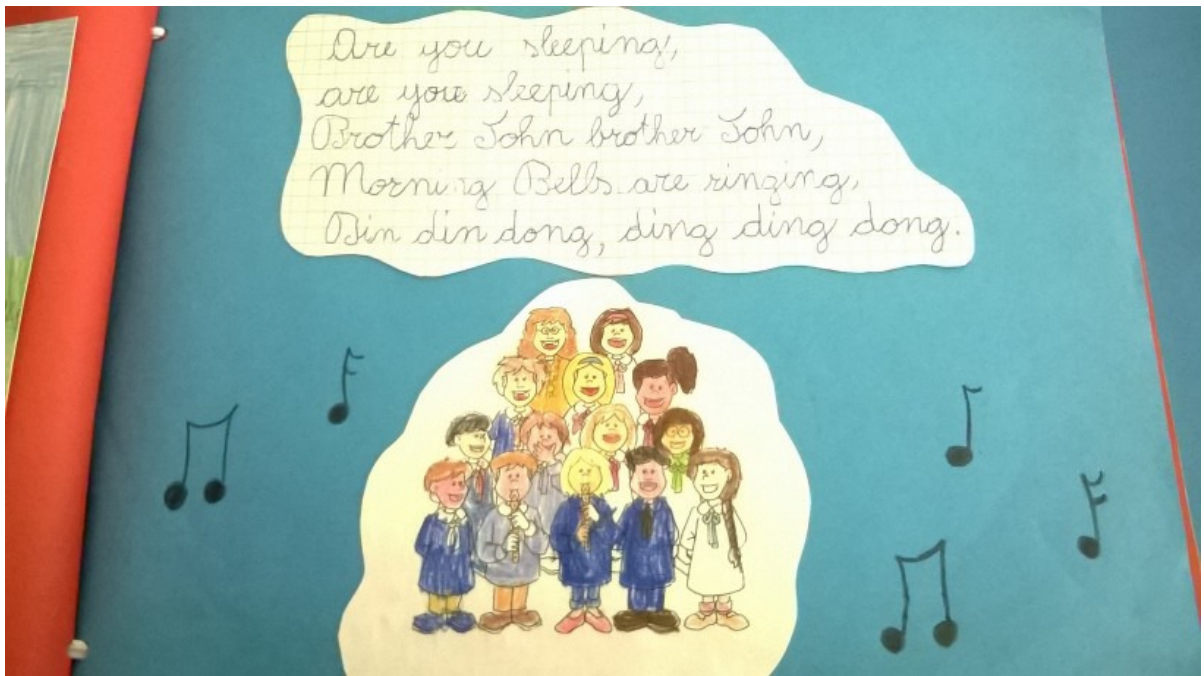 Are you sleeping,
are you sleeping,
Brother John brother John,
Morning Bells are ringing,
Din din dong, ding ding dong.